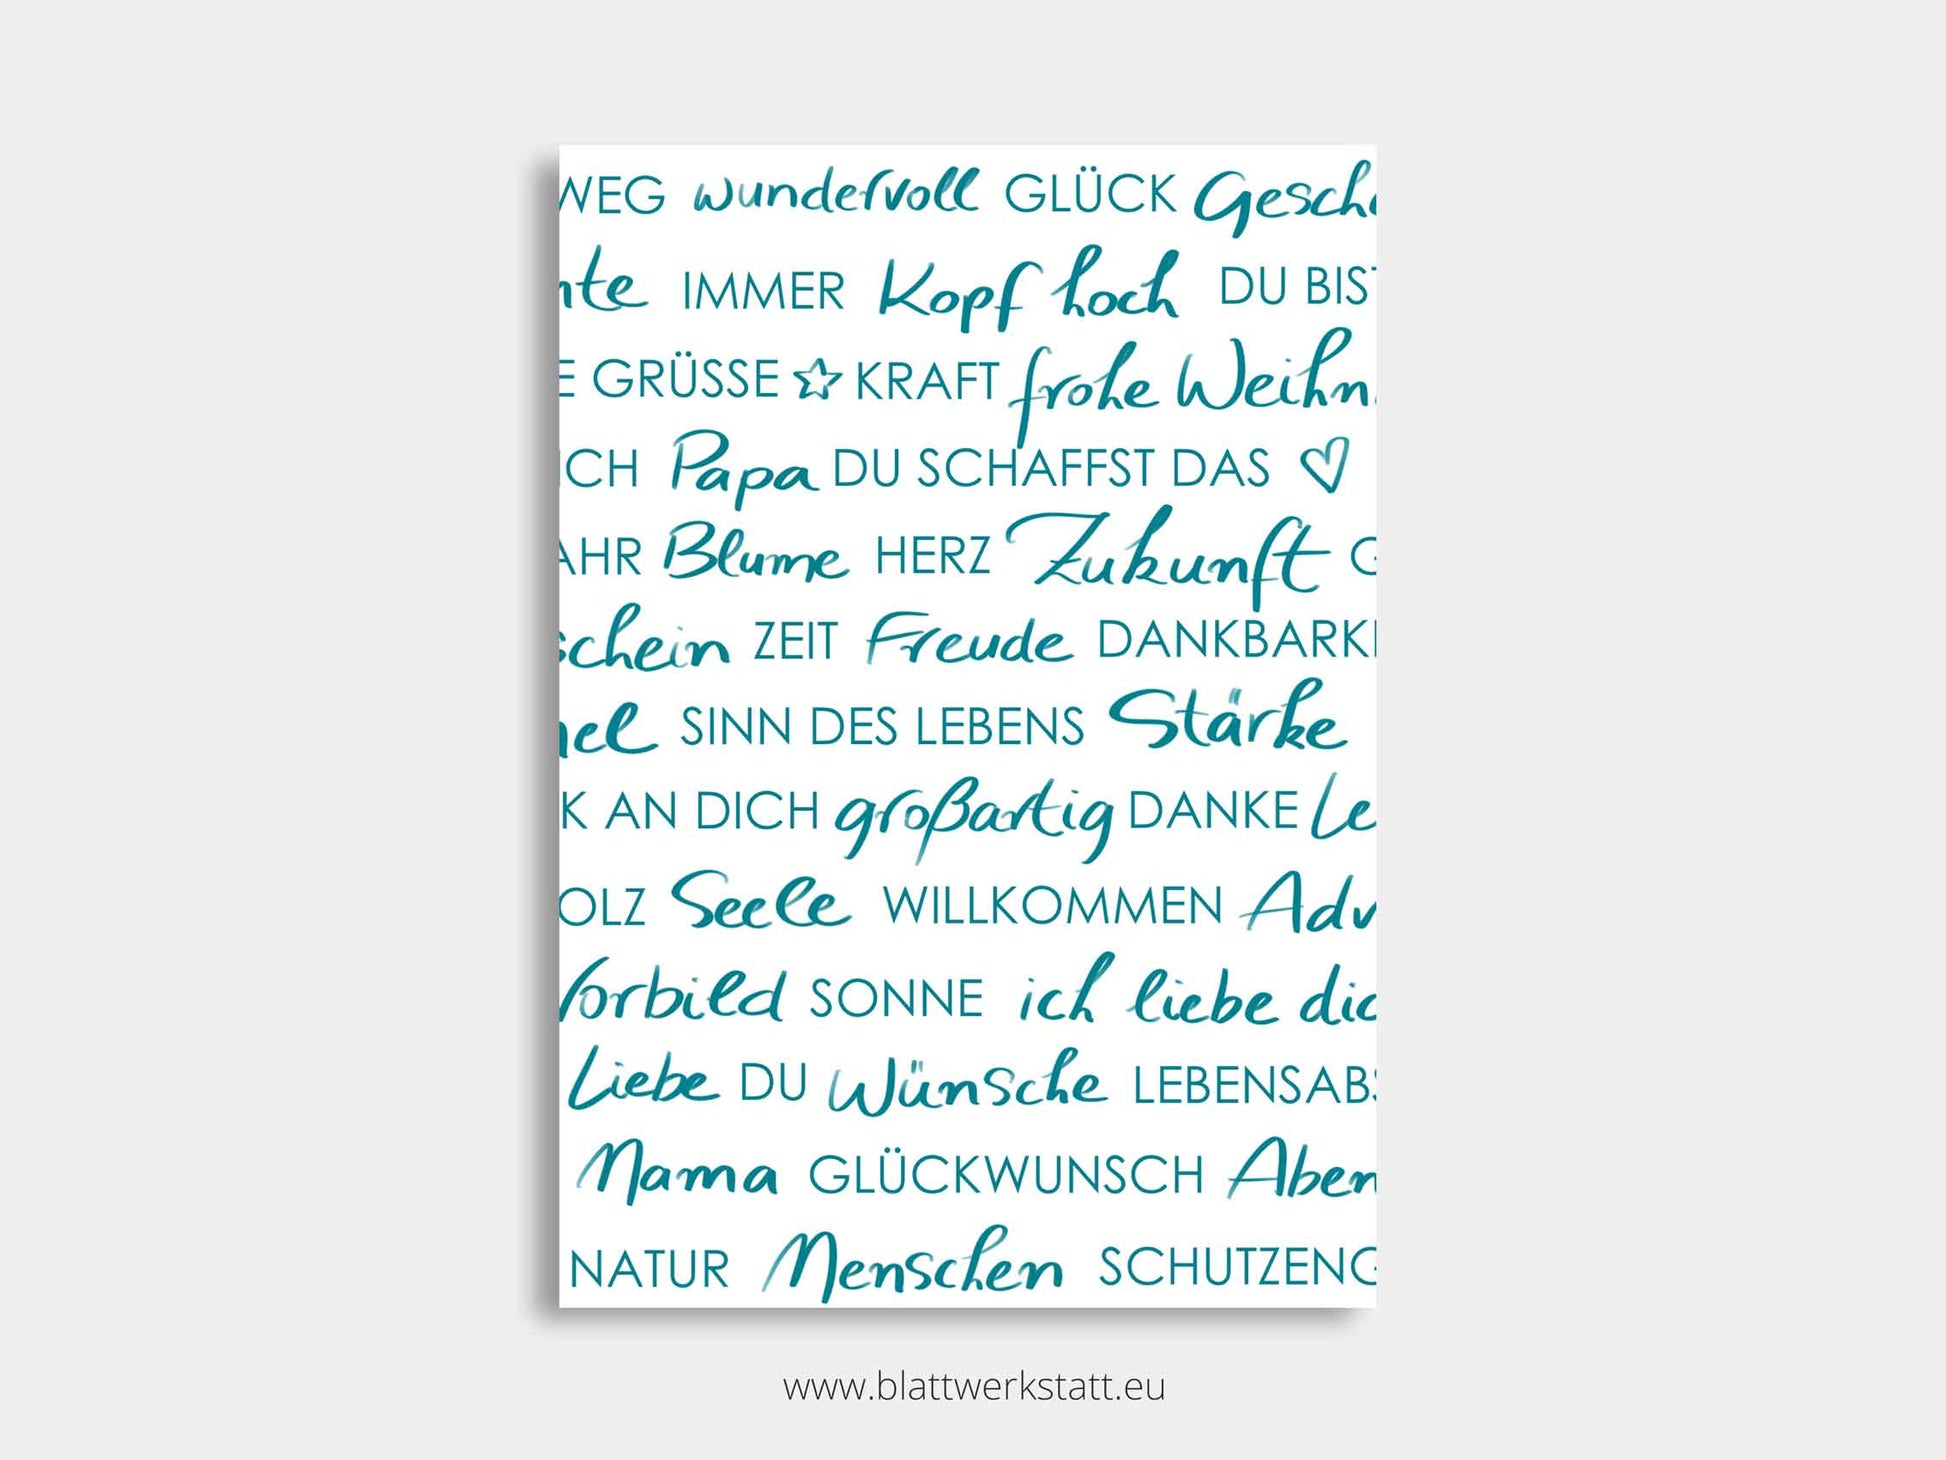 WEG wundervoll GLÜCK Gesch
nte IMMER Kopf hoch DU BIST
E GRÜSSE KRAFT frohe Weihn
ICH Papa DU SCHAFFST DAS
AHR Blume HERZ Zukunft G
schein ZEIT Freude DANKBARKE
mel SINN DES LEBENS Stärke
K AN DICH großartig DANKE Le
OLZ Seele WILLKOMMEN Adv
Vorbild SONNE ich liebe dic
Liebe DU Wünsche LEBENSABS
Mama GLÜCKWUNSCH Aben
NATUR Menschen SCHUTZENG
www.blattwerkstatt.eu